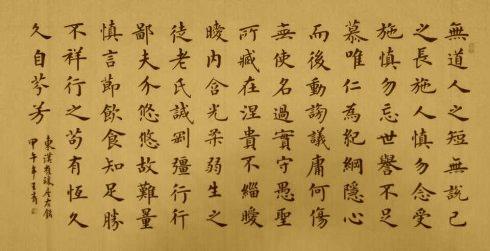 無道人之短無說己
之長施人慎勿念受
施慎勿忘世譽不足
慕唯仁為紀綱隱心
而後動謗議庸何傷
無使名過實守愚聖
所臧在涅貴不緇曖
曖內含光柔弱生之
徒老氏誡剛彊行行
鄙夫介悠悠故難量
慎言節飲食知足勝
不祥行之苟有恆久
久自芬芳
東漢崔瑗座右銘
甲午年